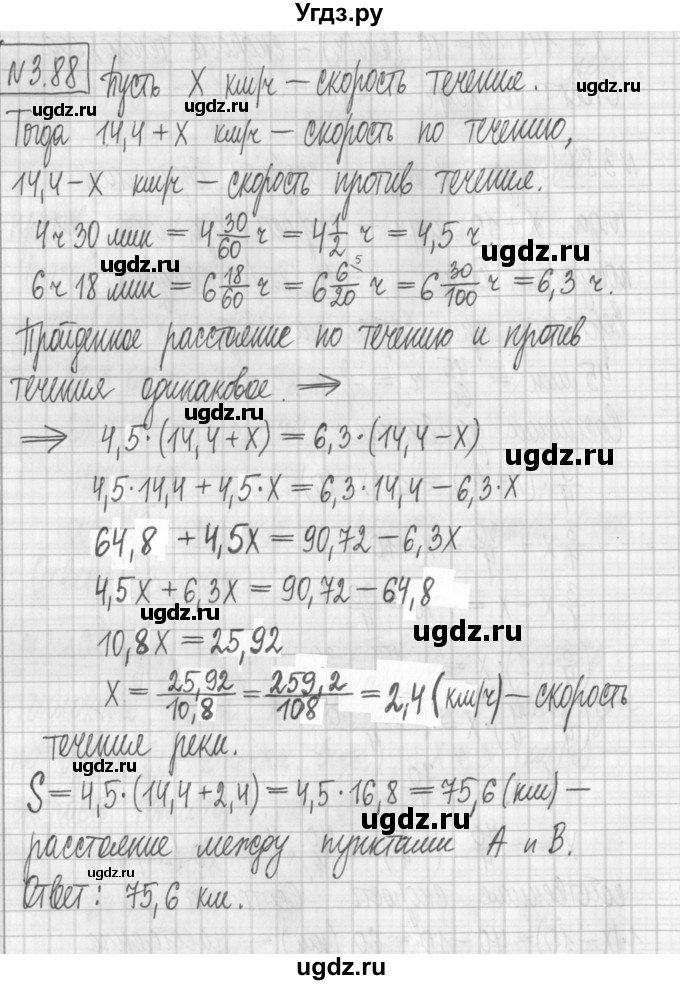 Угдз.ру
№3.88 Пусть X км/ч – скорость течение.
ugdz.ru ugdz.ru
Тогда 14,4 + X км/ч – скорость по течению,
14,4 – X км/ч – скорость против течения.
4ч 30 мин = 4 30/60 ч = 4 1/2 ч = 4,5 ч
ugdz.ru ugdz.ru
6ч 18 мин = 6 18/60 ч = 6 6/20 ⁵ ч = 6 30/100 ч = 6,3 ч.
Пройденное расстояние по течению и против
течения одинаковое. ⟹
ugdz.ru
⟹ 4,5·(14,4+X) = 6,3·(14,4–X)
ugdz.ru
4,5·14,4 + 4,5·X = 6,3·14,4 – 6,3·X
64,8 + 4,5X = 90,72 – 6,3X
4,5X + 6,3X = 90,72 – 64,8
ugdz.ru
ugdz.ru
10,8X = 25,92
X = 25,92/10,8 = 259,2/108 = 2,4 (км/ч) – скорость
ugdz.ru
течения реки.
ugdz.ru
S = 4,5·(14,4+2,4) = 4,5·16,8 = 75,6 (км) –
ugdz.ru
расстояние между пунктами А и В.
ugdz.ru
Ответ: 75,6 км.
ugdz.ru